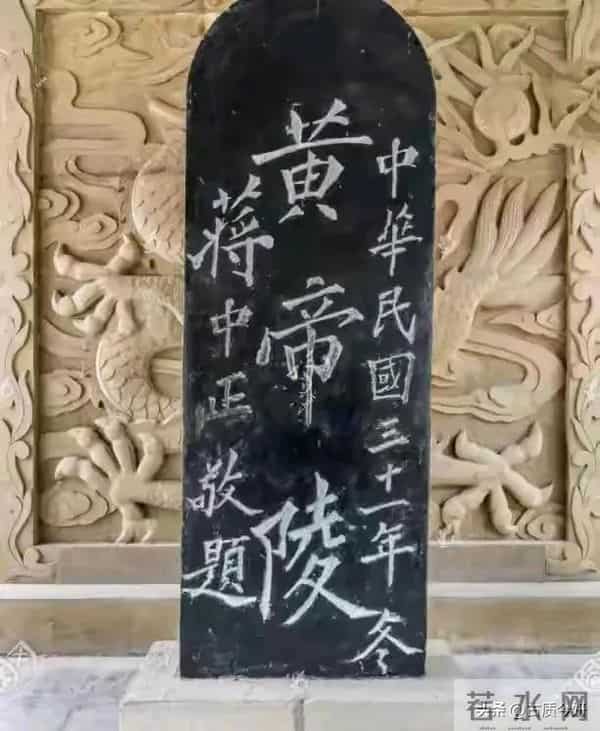 中華民國三十一年冬
黃帝陵
蔣中正敬題
茬水网